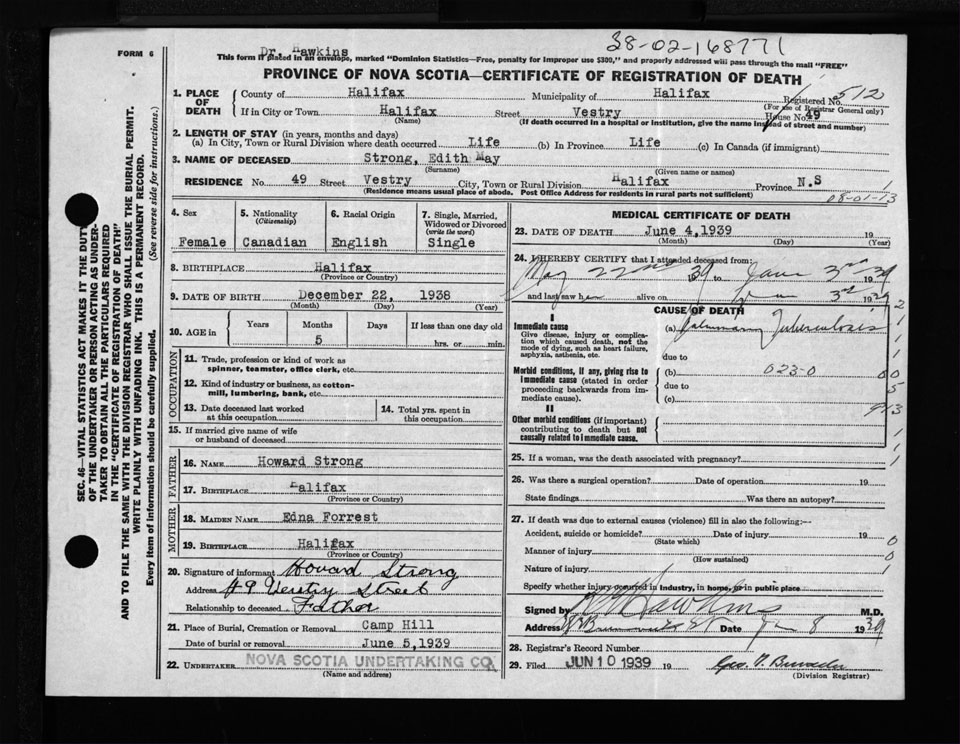 38-02-168771
FORM 6
Dr. Hawkins
This form if placed in an envelope, marked "Dominion Statistics—Free, penalty for improper use $300," and properly addressed will pass through the mail "FREE"
PROVINCE OF NOVA SCOTIA—CERTIFICATE OF REGISTRATION OF DEATH
1. PLACE OF DEATH
County of Halifax Municipality of Halifax Registered No. 512
(For use of Registrar General only)
If in City or Town Halifax Street Vestry House No. 49
(Name) (If death occurred in a hospital or institution, give the name instead of street and number)
2. LENGTH OF STAY (in years, months and days)
(a) In City, Town or Rural Division where death occurred Life (b) In Province Life (c) In Canada (if immigrant)
3. NAME OF DECEASED Strong, Edith May
(Surname) (Given name or names)
RESIDENCE No. 49 Street Vestry City, Town or Rural Division Halifax Province N.S
(Residence means usual place of abode. Post Office Address for residents in rural parts not sufficient)
1
08-01-13
4. Sex
Female
5. Nationality
(Citizenship)
Canadian
6. Racial Origin
English
7. Single, Married, Widowed or Divorced
(write the word)
Single
8. BIRTHPLACE Halifax
(Province or Country)
9. DATE OF BIRTH December 22, 1938
(Month) (Day) (Year)
10. AGE in
Years Months Days If less than one day old
5 hrs. or min.
OCCUPATION
11. Trade, profession or kind of work as
spinner, teamster, office clerk, etc.
12. Kind of industry or business, as cotton-
mill, lumbering, bank, etc.
13. Date deceased last worked
at this occupation
14. Total yrs. spent in
this occupation
15. If married give name of wife
or husband of deceased
FATHER
16. NAME Howard Strong
17. BIRTHPLACE Halifax
(Province or Country)
MOTHER
18. MAIDEN NAME Edna Forrest
19. BIRTHPLACE Halifax
(Province or Country)
20. Signature of informant Howard Strong
Address 49 Vestry Street
Relationship to deceased Father
21. Place of Burial, Cremation or Removal Camp Hill
Date of burial or removal June 5,1939
22. UNDERTAKER NOVA SCOTIA UNDERTAKING CO.
(Name and address)
MEDICAL CERTIFICATE OF DEATH
23. DATE OF DEATH June 4,1939 19
(Month) (Day) (Year)
24. I HEREBY CERTIFY that I attended deceased from:
May 22nd 1939 to June 3rd 1939
and last saw her alive on June 3rd 1939
CAUSE OF DEATH
I
Immediate cause
Give disease, injury or complication which caused death, not the mode of dying, such as heart failure, asphyxia, asthenia, etc.
(a) Pulmonary Tuberculosis
due to
Morbid conditions, if any, giving rise to immediate cause (stated in order proceeding backwards from immediate cause).
(b) 023-0
due to
(c)
II
Other morbid conditions (if important) contributing to death but not causally related to immediate cause.
25. If a woman, was the death associated with pregnancy?
26. Was there a surgical operation? Date of operation 19
State findings Was there an autopsy?
27. If death was due to external causes (violence) fill in also the following:—
Accident, suicide or homicide? Date of injury 19
(State which)
Manner of injury
(How sustained)
Nature of injury
Specify whether injury occurred in industry, in home, or in public place
Signed by Hawkins M.D.
Address Date June 8 1939
28. Registrar's Record Number
29. Filed JUN 10 1939 19
(Division Registrar)
SEC. 46—VITAL STATISTICS ACT MAKES IT THE DUTY
OF THE UNDERTAKER OR PERSON ACTING AS UNDER-
TAKER TO OBTAIN ALL THE PARTICULARS REQUIRED
IN THE "CERTIFICATE OF REGISTRATION OF DEATH"
AND TO FILE THE SAME WITH THE DIVISION REGISTRAR WHO SHALL ISSUE THE BURIAL PERMIT.
WRITE PLAINLY WITH UNFADING INK. THIS IS A PERMANENT RECORD.
Every item of information should be carefully supplied. (See reverse side for instructions.)